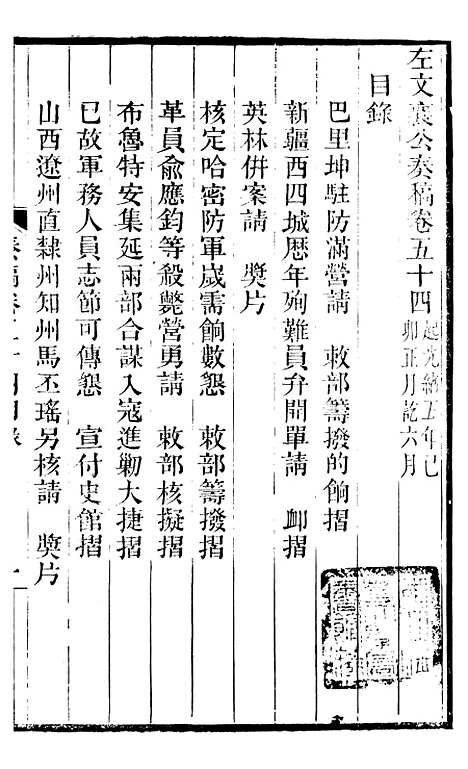 左文襄公奏稿卷五十四起光緒五年己卯正月訖六月
目錄
巴里坤駐防滿營請　敕部籌撥的餉摺
新疆西四城歷年殉難員弁開單請　卹摺
英林併案請　奬片
核定哈密防軍歲需餉數懇　敕部籌撥摺
革員俞應鈞等殺斃營勇請　敕部核擬摺
布魯特安集延兩部合謀入寇進勦大捷摺
已故軍務人員志節可傳懇　宣付史館摺
山西遼州直隸州知州馬丕瑤另核請　奬片
奏稿卷五十四目錄　一